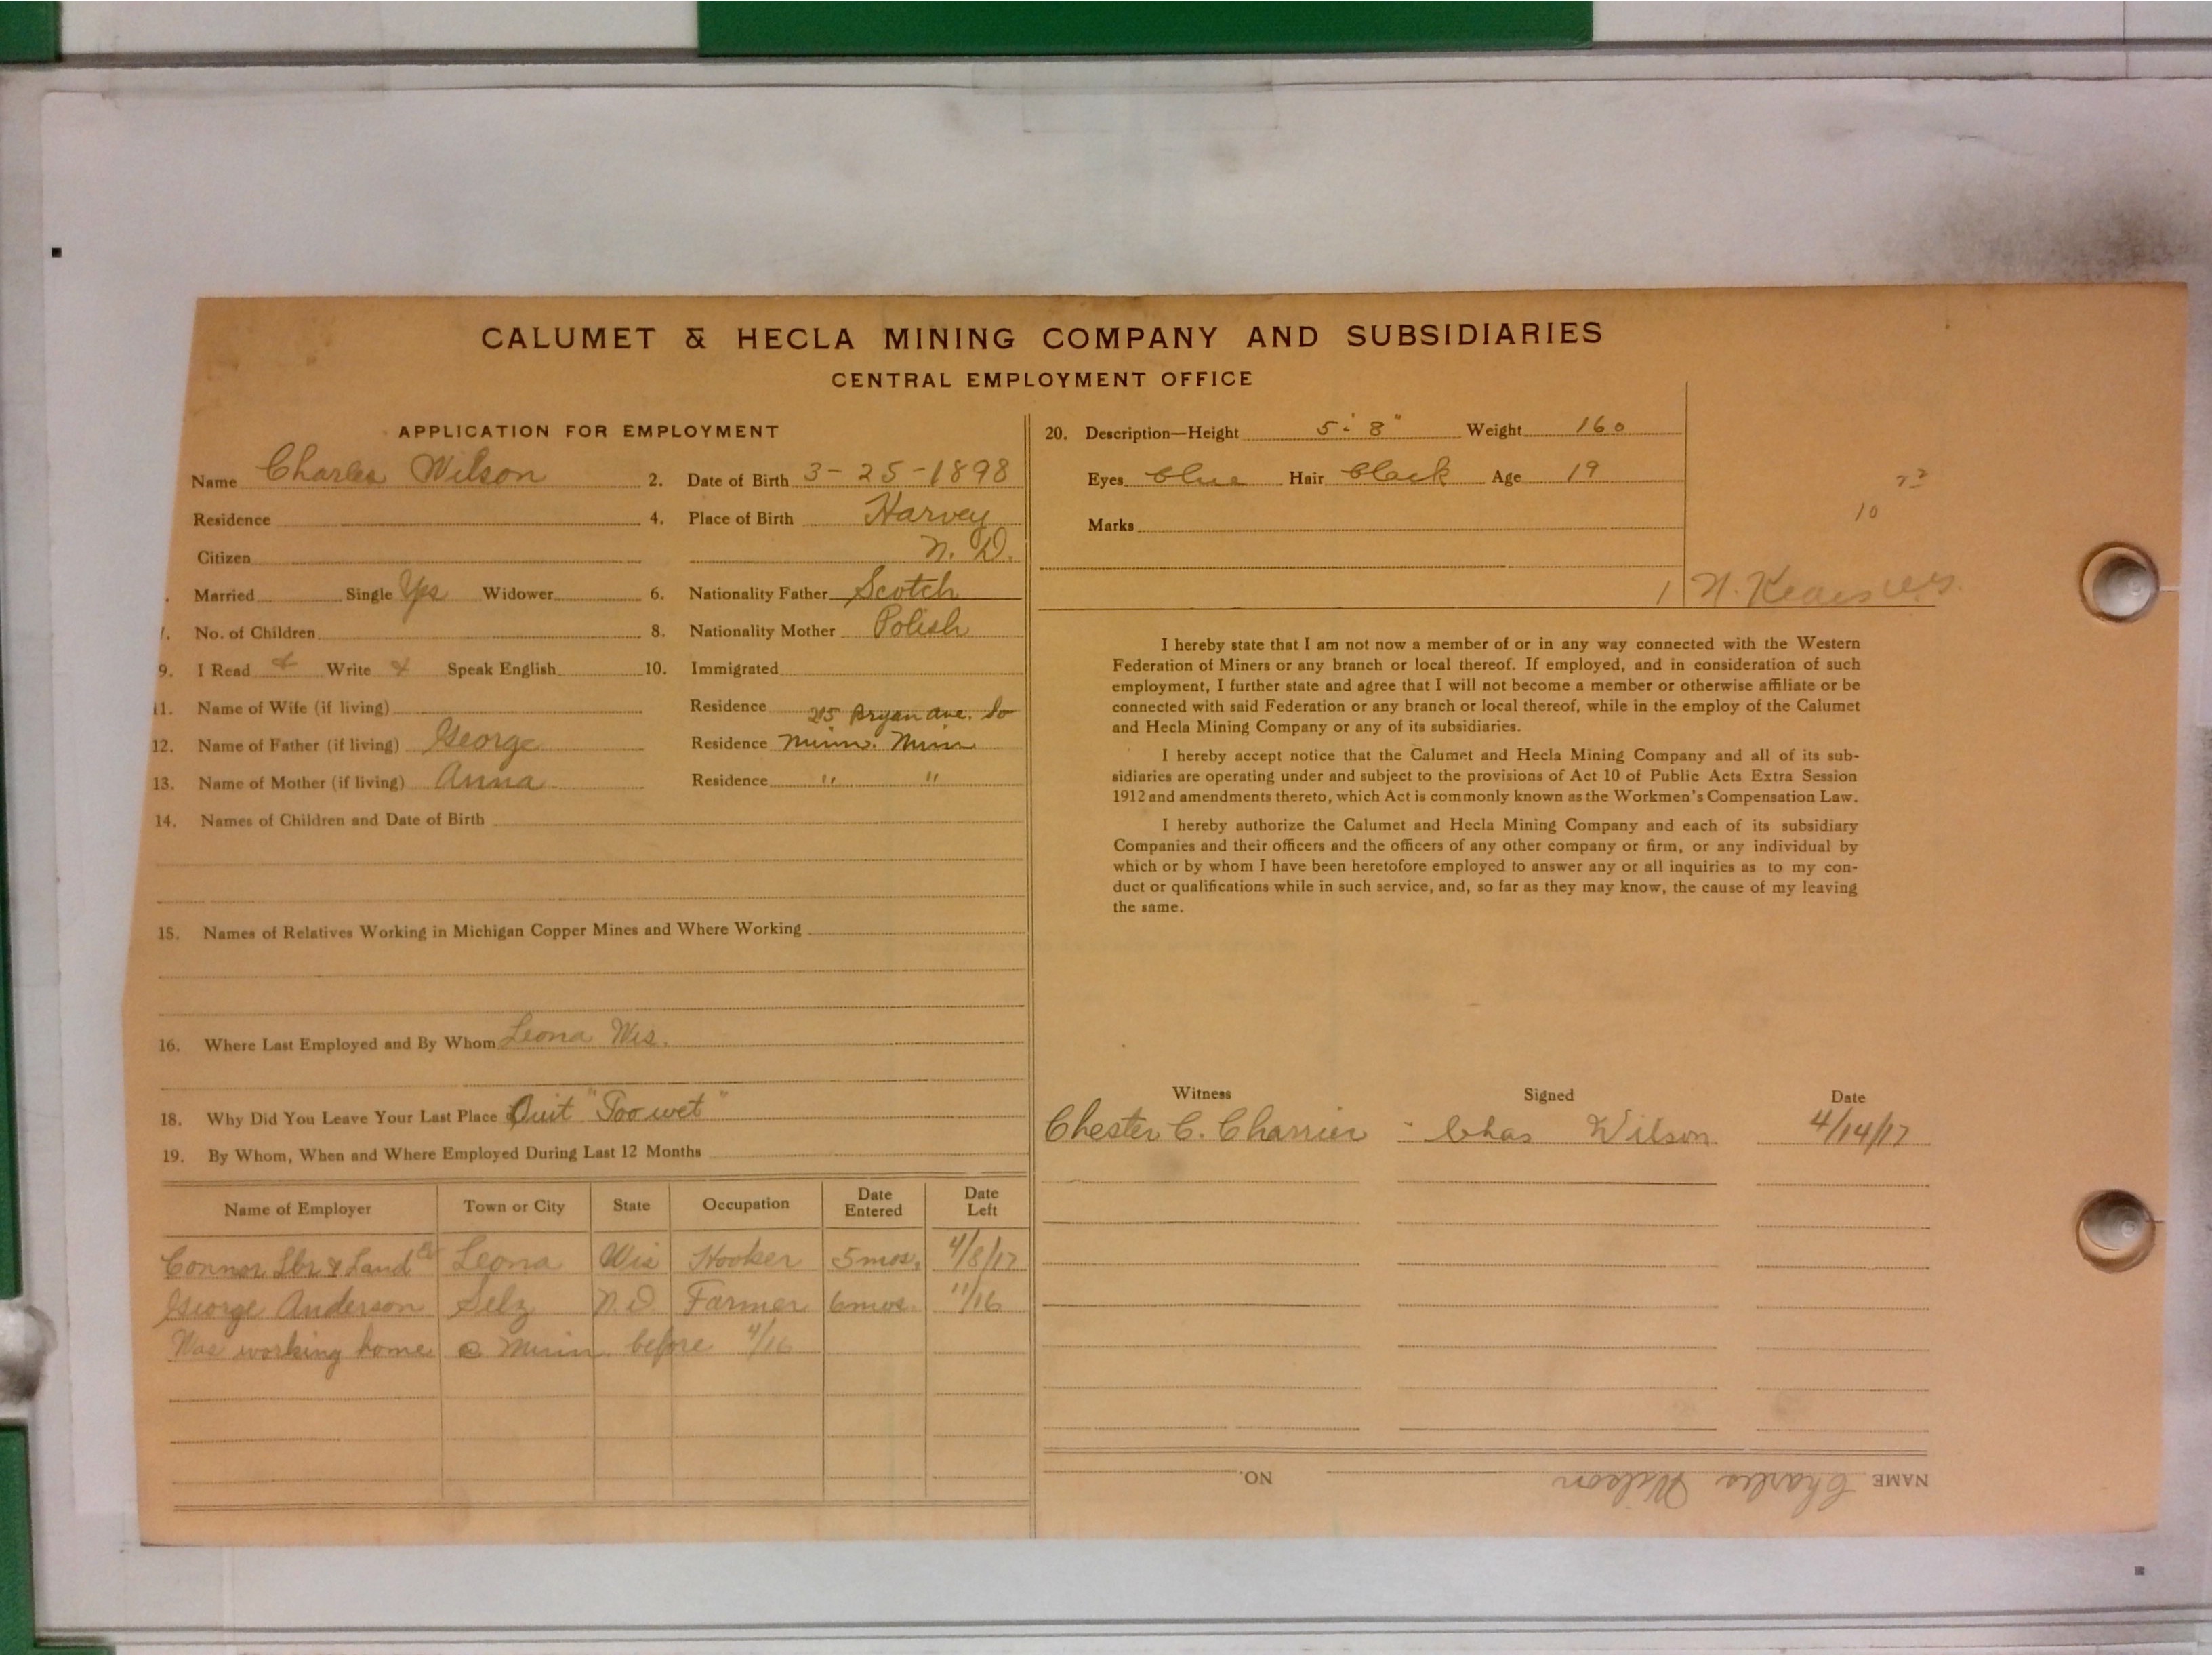 CALUMET & HECLA MINING COMPANY AND SUBSIDIARIES
CENTRAL EMPLOYMENT OFFICE
APPLICATION FOR EMPLOYMENT
Name Charles Wilson 2. Date of Birth 3-25-1898
Residence 4. Place of Birth Harvey
Citizen N. D.
Married Single Yes Widower 6. Nationality Father Scotch
7. No. of Children 8. Nationality Mother Polish
9. I Read & Write & Speak English 10. Immigrated
11. Name of Wife (if living) Residence 215 Bryan Ave. So
12. Name of Father (if living) George Residence Minn. Minn
13. Name of Mother (if living) Anna Residence " "
14. Names of Children and Date of Birth
15. Names of Relatives Working in Michigan Copper Mines and Where Working
16. Where Last Employed and By Whom Leona Wis.
18. Why Did You Leave Your Last Place Quit "Too wet"
19. By Whom, When and Where Employed During Last 12 Months
Name of Employer Town or City State Occupation Date Entered Date Left
Connor Lbr & Land Co Leona Wis Hooker 5 mos. 4/8/17
George Anderson Selz N.D Farmer 6 mos. 11/16
Was working home @ Minn. before 4/16
20. Description—Height 5' 8" Weight 160
Eyes blue Hair black Age 19
Marks
10
1 N.
I hereby state that I am not now a member of or in any way connected with the Western
Federation of Miners or any branch or local thereof. If employed, and in consideration of such
employment, I further state and agree that I will not become a member or otherwise affiliate or be
connected with said Federation or any branch or local thereof, while in the employ of the Calumet
and Hecla Mining Company or any of its subsidiaries.
I hereby accept notice that the Calumet and Hecla Mining Company and all of its sub-
sidiaries are operating under and subject to the provisions of Act 10 of Public Acts Extra Session
1912 and amendments thereto, which Act is commonly known as the Workmen's Compensation Law.
I hereby authorize the Calumet and Hecla Mining Company and each of its subsidiary
Companies and their officers and the officers of any other company or firm, or any individual by
which or by whom I have been heretofore employed to answer any or all inquiries as to my con-
duct or qualifications while in such service, and, so far as they may know, the cause of my leaving
the same.
Witness Signed Date
Chester C. Charrier Chas Wilson 4/14/17
NAME Charles Wilson NO.